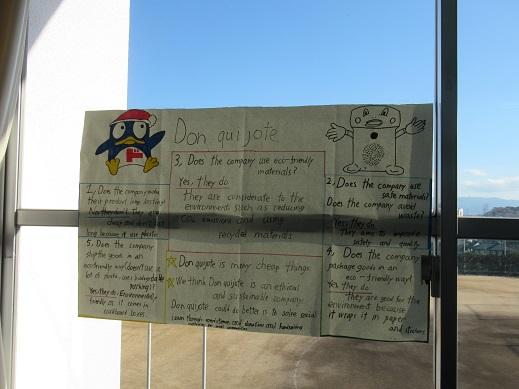 Don quijote
1, Does the company make
their product long lasting?
No, they don't. They are
cheap and don't
long because it use plastic
5, Does the company
ship the goods in an
eco-friendly way
a lot of plastic
Yes, they do. Environmentally
friendly as it comes in
cardboard boxes
3, Does the company use eco-friendly
materials?
Yes, they do
They are considerate to the
environment, such as reducing
CO2 emissions and using
recycled materials
Don quijote is many cheap things
We think Don quijote is an ethical
and sustainable company
Don quijote could do better is to solve social
issues through assistance and donation and fundraising
2, Does the company use
safe materials?
Does the company avoid
waste?
Yes, they do
They aim to improve
safety and quality
4, Does the company
package goods in an
eco-friendly way?
Yes they do
They are good for the
environment because
it wraps it in paper
and stickers